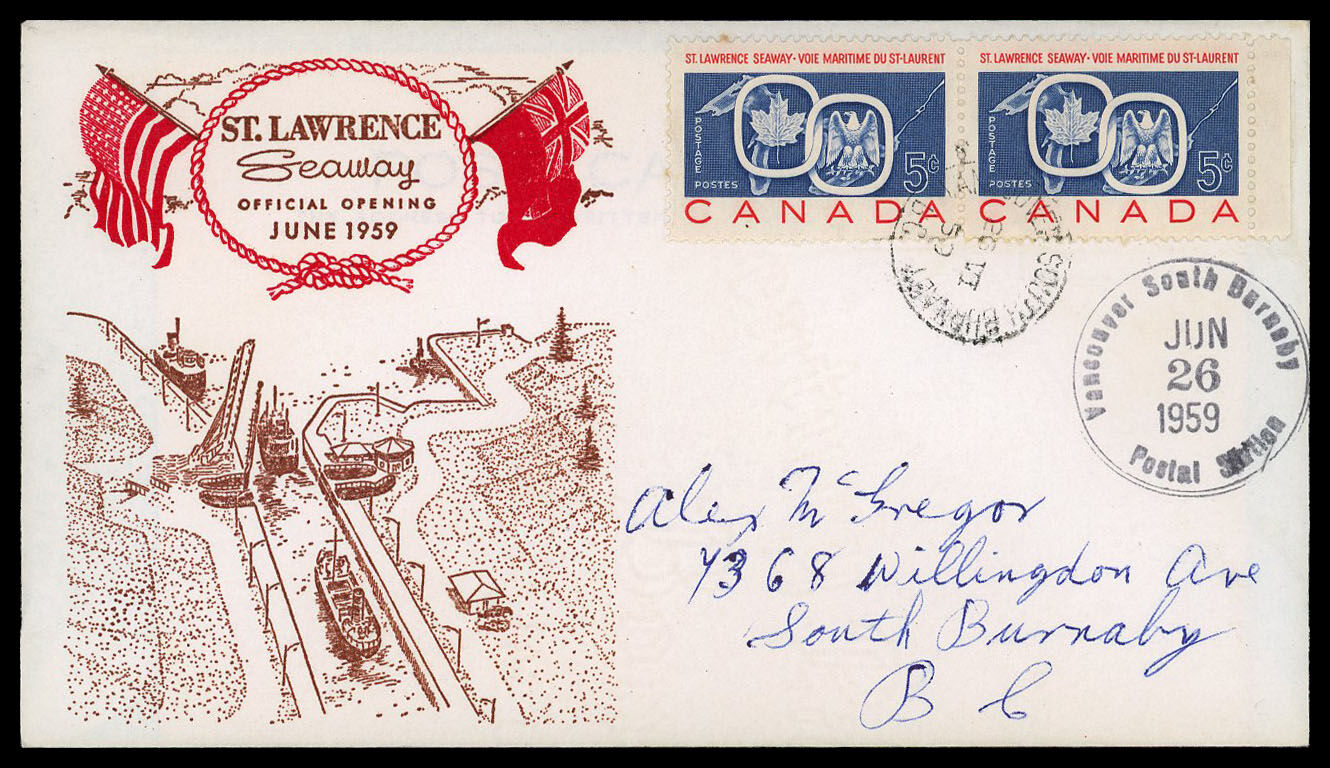 ST. LAWRENCE
Seaway
OFFICIAL OPENING
JUNE 1959
ST. LAWRENCE SEAWAY · VOIE MARITIME DU ST-LAURENT
POSTAGE
POSTES
5¢
CANADA
ST. LAWRENCE SEAWAY · VOIE MARITIME DU ST-LAURENT
POSTAGE
POSTES
5¢
CANADA
SOUTH BURNABY
Vancouver South Burnaby
JUN
26
1959
Postal Station
Alex McGregor
7368 Willingdon Ave
South Burnaby
B C